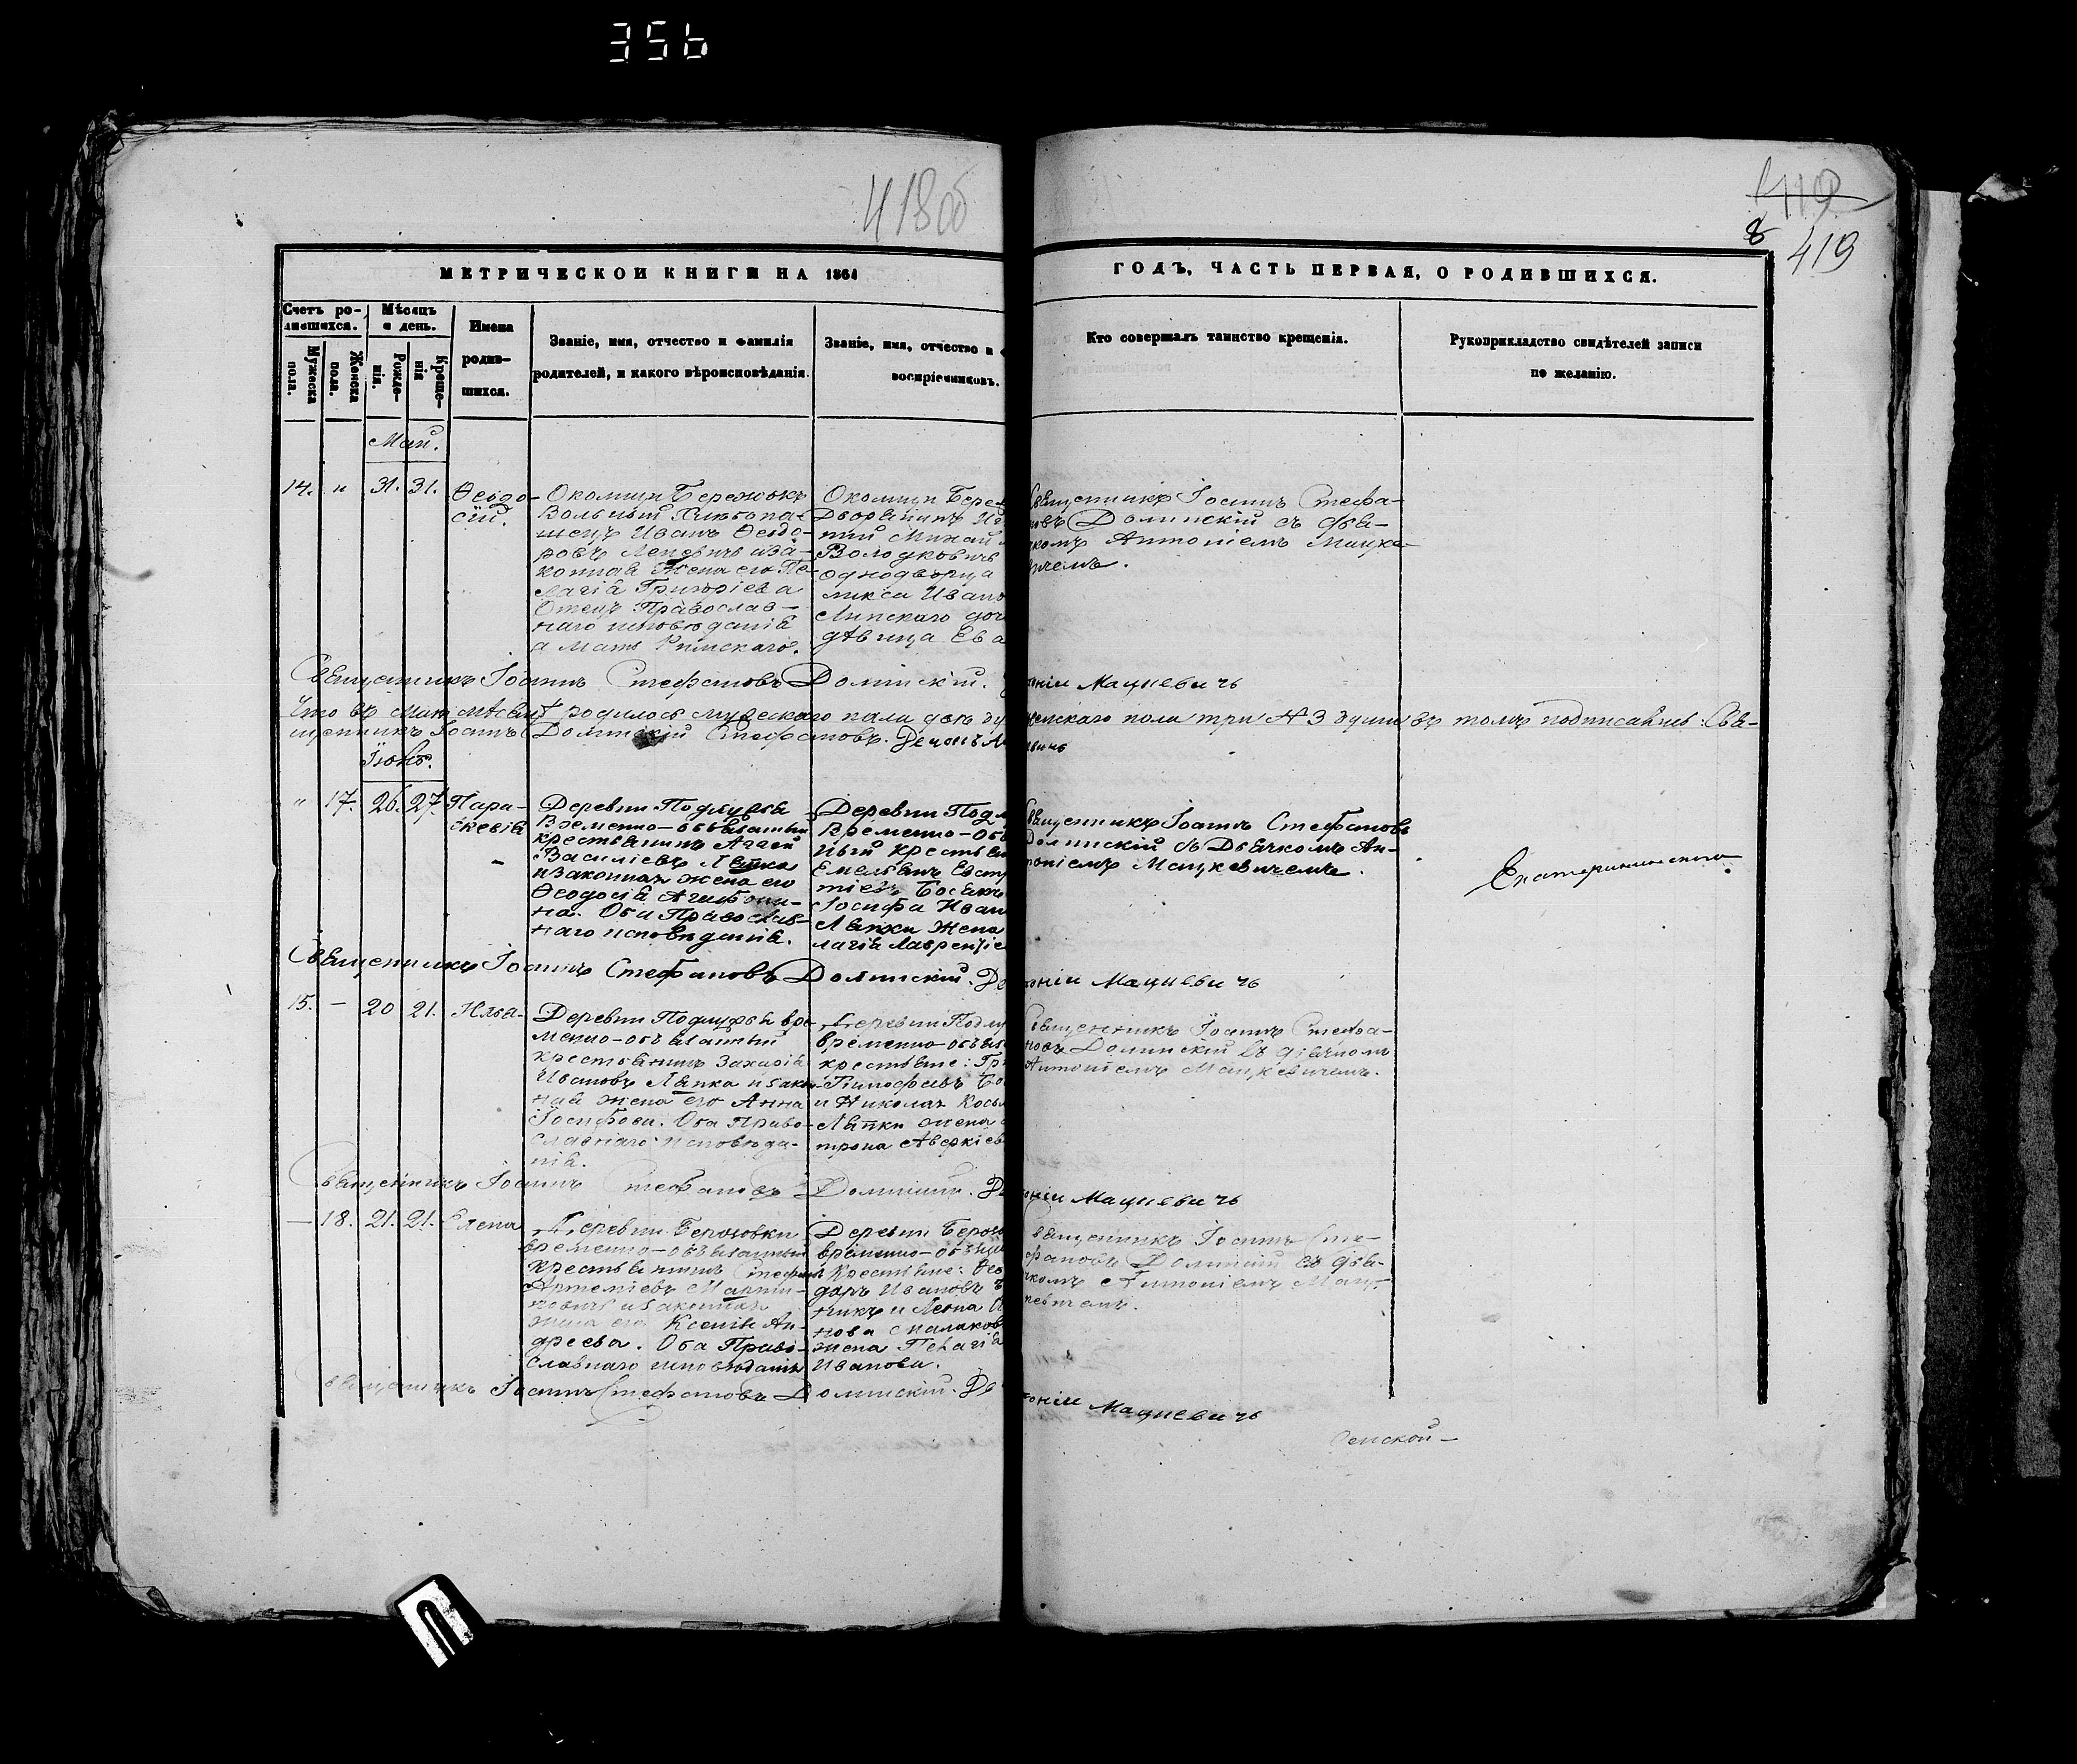 356
418об
419
8
419
МЕТРИЧЕСКОЙ КНИГИ НА 1864
ГОДЪ, ЧАСТЬ ПЕРВАЯ, О РОДИВШИХСЯ.
Счетъ родившихся.
Мужеска пола.
Женска пола.
Мѣсяцъ и день.
Рожденія.
Крещенія
Имена родившихся.
Званіе, имя, отчество и фамилія
родителей, и какого вѣроисповѣданія.
Званіе, имя, отчество и
воспріемниковъ.
Кто совершалъ таинство крещенія.
Рукоприкладство свидѣтелей записи
по желанію.
Май.
14. „ 31. 31.
Ѳеодо-
сій.
Околицы Бережокъ
Вольный Хлѣбопа-
шецъ Иванъ Ѳеодо-
ровъ
конная жена его Пе-
лагія Григоріева
Отецъ Православ-
наго исповѣданія
а мать Римскаго.
Околицы Бере
Дворянинъ Иг
тій Михай
Володковичъ
однодворца
ликса Ивано
Липскаго доч
дѣвица Ева
Священникъ Іоаннъ Стефа-
новъ Долинскій съ дья-
комъ Антоніемъ Мацке-
вичемъ.
Священникъ Іоаннъ Стефановъ Долинскій.
оній Мацкевичъ
Что въ Маѣ мѣсяцѣ родилось мужескаго пола двѣ ду
женскаго пола три № 3 души въ томъ подписались: Свя-
щенникъ Іоаннъ Долинскій Стефановъ. Дечокъ Ан
вичъ
Іюнь.
„ 17. 26. 27.
Пара-
скевія
Деревни Подлужья
Временно-обязанный
крестьянинъ Аггей
Василіевъ Ляпка
и законная жена его
Ѳеодосія Агаѳони-
на. Оба Православ-
наго исповѣданія.
Деревни Подл
Временно-Обя
ный крестьян
Емельянъ Евста
тіевъ Босякъ
Іосифа Иван
Ляпки жена
лагія Лаврентіе
Священникъ Іоаннъ Стефановъ
Долинскій съ Дьячкомъ Ан-
тоніемъ Мацкевичемъ.
Екатерининскаго
Священникъ Іоаннъ Стефановъ Долинскій. Де
тоній Мацкевичъ
15. — 20 21.
Илья.
Деревни Подлужья вре-
менно-обязанный
крестьянинъ Захарія
Ивановъ Ляпка и закон-
ная жена его Анна
Іосифова. Оба Право-
славнаго исповѣда-
нія.
Деревни Подлу
временно-обяз
крестьяне: Гри
Тимофѣевъ Бо
и Николая Косьм
Ляпки жена
трона Аверкіев
Священникъ Іоаннъ Стефа-
новъ Долинскій съ дьячкомъ
Антоніемъ Мацкевичемъ.
Священникъ Іоаннъ Стефановъ Долинскій. Де
оній Мацкевичъ
— 18. 21. 21.
Елена
Деревни Бережовки
временно-обязанный
крестьянинъ Стефанъ
Артеміевъ Мартин-
кевичъ и законная
жена его Ксенія Ан-
дреева. Оба Право-
славнаго исповѣданія
Деревни Бережо
временно-обяза
Крестьяне: Ѳео
доръ Ивановъ
никъ и Леона И
нова
жена Пелагія
Иванова.
вященникъ Іоаннъ Сте-
фановъ Долинскій съ дья-
чкомъ Антоніемъ Мац-
кевичемъ.
Священникъ Іоаннъ Стефановъ Долинскій. Де
тоній Мацкевичъ